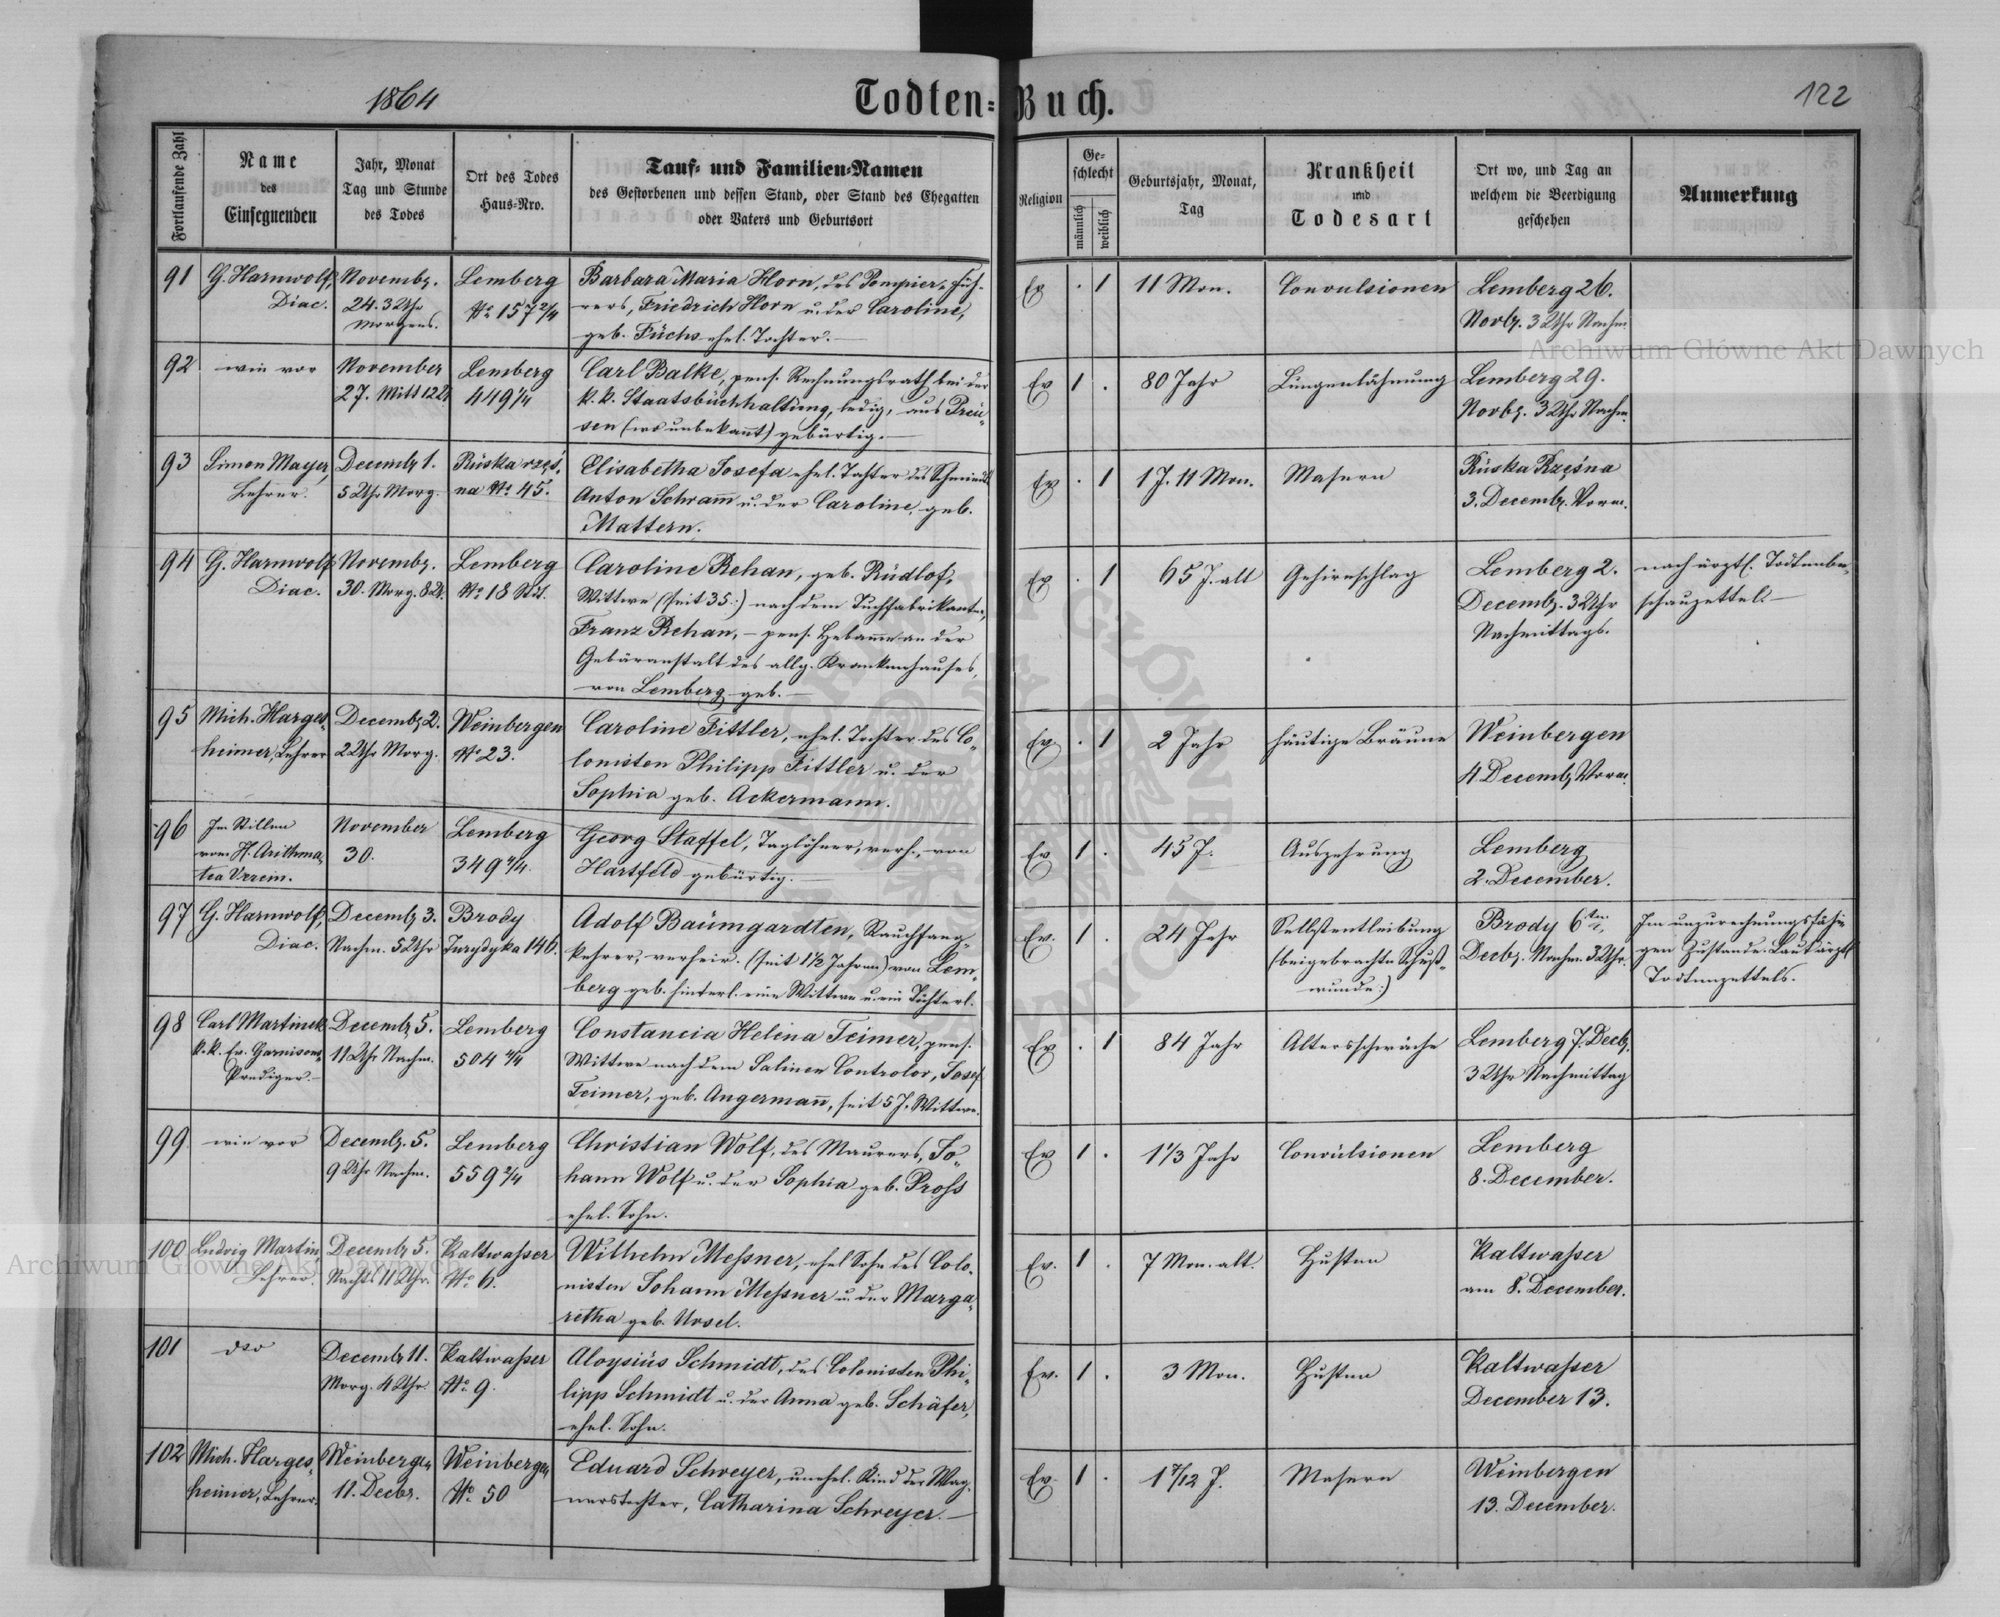 1864
Todten-Buch.
122
Fortlaufende Zahl
Name
des
Einsegnenden
Jahr, Monat
Tag und Stunde
des Todes
Ort des Todes
Haus-Nro.
Tauf- und Familien-Namen
des Gestorbenen und dessen Stand, oder Stand des Ehegatten
oder Vaters und Geburtsort
Religion
Ge-
schlecht
männlich
weiblich
Geburtsjahr, Monat,
Tag
Krankheit
und
Todesart
Ort wo, und Tag an
welchem die Beerdigung
geschehen
Anmerkung
91
G. Harnwolf,
Diac.
Novembr.
24. 3 Uhr
Morgens.
Lemberg
No 157 2/4
Barbara Maria Horn, des Pompier-Füh-
rers, Friedrich Horn u. der Caroline,
geb. Füchs ehel. Tochter.
Ev
. 1
11 Mon.
Convulsionen
Lemberg 26.
Novbr. 3 Uhr Nachm.
92
wie vor
November
27. Mitt 12 U
Lemberg
449 1/4
Carl Balke, pens. Rechnungsrath bei der
k. k. Staatsbuchhaltung, ledig, aus Preu-
sen (wo unbekannt) gebürtig.
Ev
1 .
80 Jahr
Lungenlähmung
Lemberg 29.
Novbr. 3 Uhr Nachm.
93
Simon Mayer,
Lehrer.
Decembr 1.
5 Uhr Morg.
Rüska rzęś-
na No 45.
Elisabetha Josefa ehel. Tochter des Schmieds
Anton Schram̄ u. der Caroline, geb.
Mattern.
Ev
. 1
1 J. 11 Mon.
Masern
Rüska Rzęśna
3. Decembr. Vorm.
94
G. Harnwolf
Diac.
Novembr.
30. Morg. 8 U.
Lemberg
No 18 St.
Caroline Rehan, geb. Rüdlof,
Wittwe (seit 35.) nach dem Tuchfabrikanten,
Franz Rehan, – pens. Hebamme an der
Gebäranstalt des allg. Krankenhauses,
von Lemberg geb.
Ev
. 1
65 J. alt
Gehirnschlag
Lemberg 2.
Decembr. 3 Uhr
Nachmittags.
nach ärztl. Todtenbe-
schauzettel.
95
Mich. Harges-
heimer, Lehrer
Decembr 2.
2 Uhr Morg.
Weinbergen
No 23.
Caroline Fittler, ehel. Tochter des Co-
lonisten Philipp Fittler u. der
Sophia geb. Ackermann.
Ev
. 1
2 Jahr
häutige Bräune
Weinbergen
4 Decembr Vorm.
96
Im Stillen
vom H. Arithma-
tea Verein.
November
30.
Lemberg
349 4/4.
Georg Staffel, Taglöhner, verh., von
Hartfeld gebürtig.
Ev
1 .
45 J.
Auszehrung
Lemberg
2. December.
97
G. Harnwolf,
Diac.
Decembr 3.
Nachm. 5 Uhr
Brody
Jurydyka 146.
Adolf Baümgardten, Rauchfang-
kehrer, verheir. (seit 1½ Jahren) von Lem-
berg geb. hinterl. eine Wittwe u. ein Töchterl.
Ev.
1 .
24 Jahr
Selbstentleibung
(beigebrachte Schuß-
wunde.)
Brody 6ten
Decbr. Nachm. 3 Uhr.
Im unzurechnungsfähi-
gen Zustande. Laut ärztl
Todtenzettels.
98
Carl Martinek
k. k. Ev. Garnisons-
Prediger.
Decembr 5.
11 Uhr Nachm.
Lemberg
504 4/4
Constancia Helena Teimer, pens.
Wittwe nach dem Salinen Controlor, Josef
Teimer, geb. Angerman̄, seit 5 J. Wittwe.
Ev
. 1
84 Jahr
Altersschwäche
Lemberg 7. Decb.
3 Uhr Nachmittag
99.
wie vor
Decembr. 5.
9 Uhr Nachm.
Lemberg
559 2/4
Christian Wolf, des Maurers, Jo-
hann Wolf u. der Sophia geb. Pross
ehel. Sohn.
Ev
1 .
1 1/3 Jahr
Convülsionen
Lemberg
8. December.
100
Ludwig Martin
Lehrer.
Decembr 5.
Nachts 11 Uhr.
Kaltwasser
No 6.
Wilhelm Messner, ehel Sohn des Colo-
nisten Johann Messner u. der Marga-
retha geb. Ursel.
Ev.
1 .
7 Mon. alt.
Husten
Kaltwasser
am 8. December.
101
dto
Decembr 11.
Morg. 4 Uhr.
Kaltwasser
No 9.
Aloysiüs Schmidt, des Colonisten Phi-
lipp Schmidt u. der Anna geb. Schäfer,
ehel. Sohn.
Ev.
1 .
3 Mon.
Husten
Kaltwasser
December 13.
102
Mich. Harges-
heimer, Lehrer.
Weinbergen
11. Decbr.
Weinbergen
No. 50
Eduard Schreyer, unehel. Kind der Wag-
nerstochter, Catharina Schreyer.
Ev.
1 .
1 7/12 J.
Masern
Weinbergen
13. December.
Archiwum Główne Akt Dawnych
Archiwum Główne Akt Dawnych